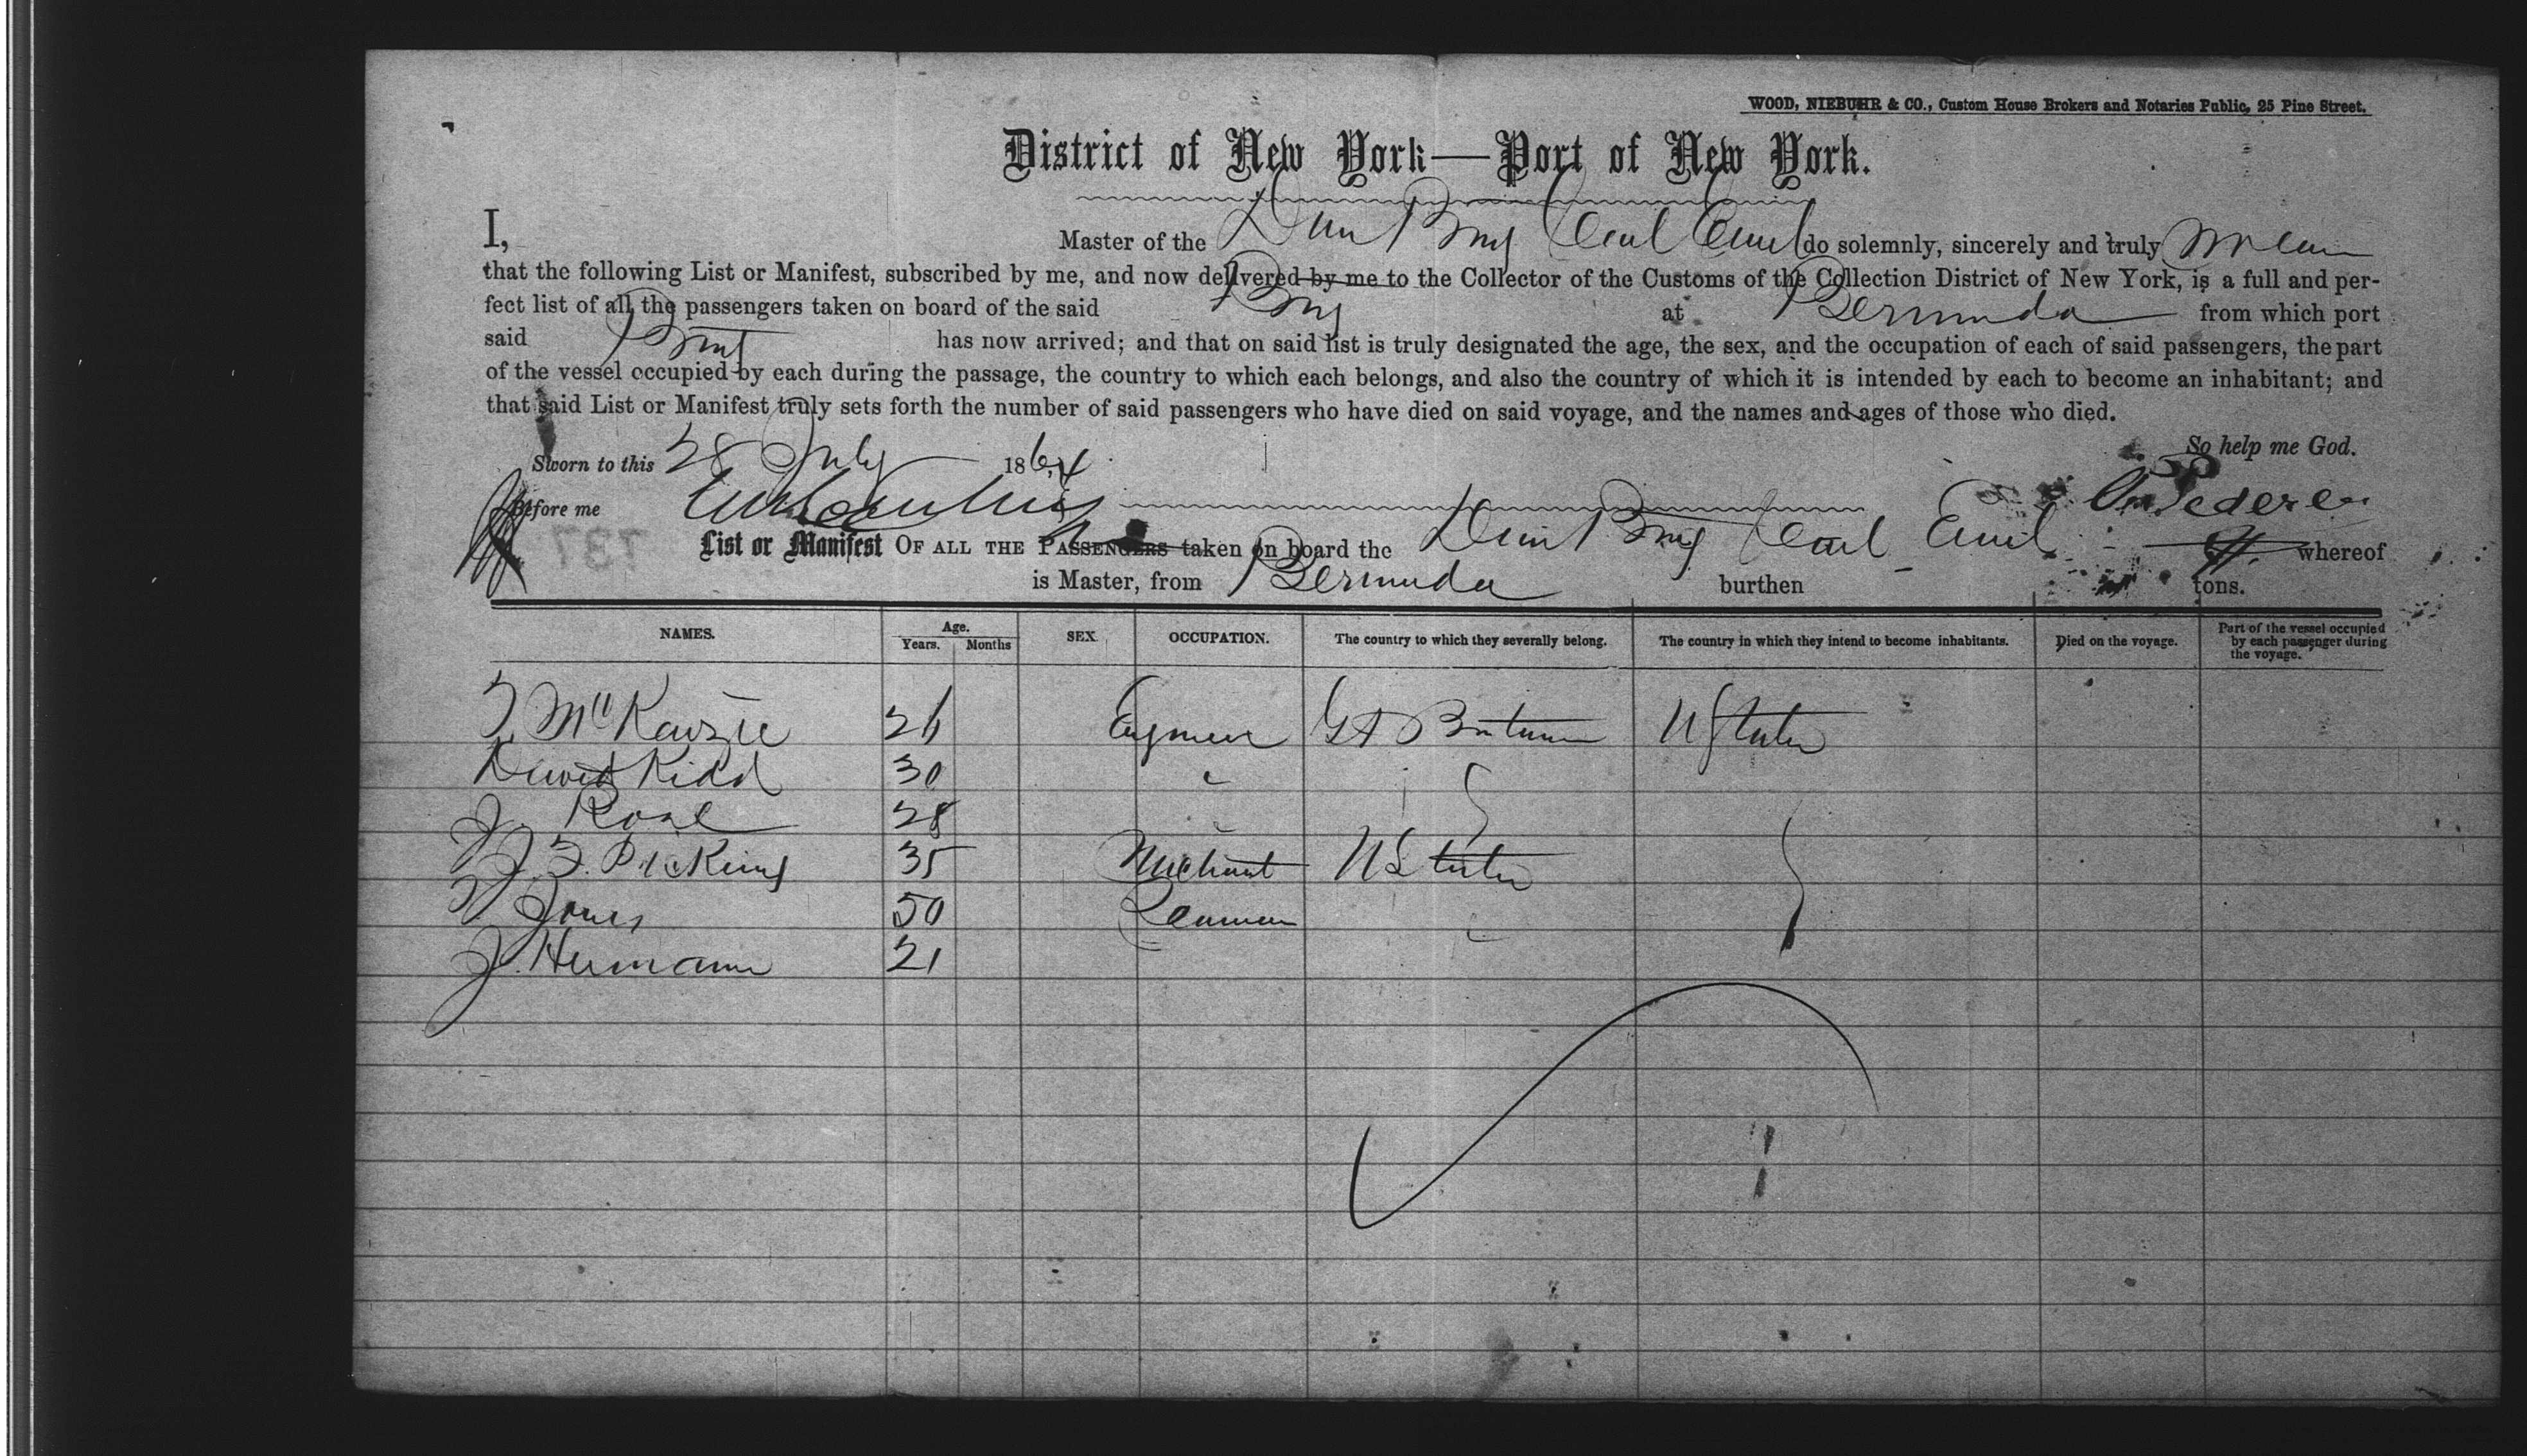 WOOD, NIEBUHR & CO., Custom House Brokers and Notaries Public, 25 Pine Street.
District of New York—Port of New York.
I, Master of the Brig Carl Emil do solemnly, sincerely and truly swear
that the following List or Manifest, subscribed by me, and now delivered by me to the Collector of the Customs of the Collection District of New York, is a full and per-
fect list of all the passengers taken on board of the said Brig at Bermuda from which port
said Brig has now arrived; and that on said list is truly designated the age, the sex, and the occupation of each of said passengers, the part
of the vessel occupied by each during the passage, the country to which each belongs, and also the country of which it is intended by each to become an inhabitant; and
that said List or Manifest truly sets forth the number of said passengers who have died on said voyage, and the names and ages of those who died.
So help me God.
Sworn to this 28 July 1864
Before me
737
List or Manifest OF ALL THE PASSENGERS taken on board the Brig Carl Emil whereof
is Master, from Bermuda burthen tons.
NAMES. Age. Years. Months SEX. OCCUPATION. The country to which they severally belong. The country in which they intend to become inhabitants. Died on the voyage. Part of the vessel occupied by each passenger during the voyage.
McKenzie 26 Engineer Gt Britain U States
David Kidd 30 "
J. Rose 28 "
J. F. Pickins 35 Merchant U States
Jones 50 Seaman "
J. Hermann 21